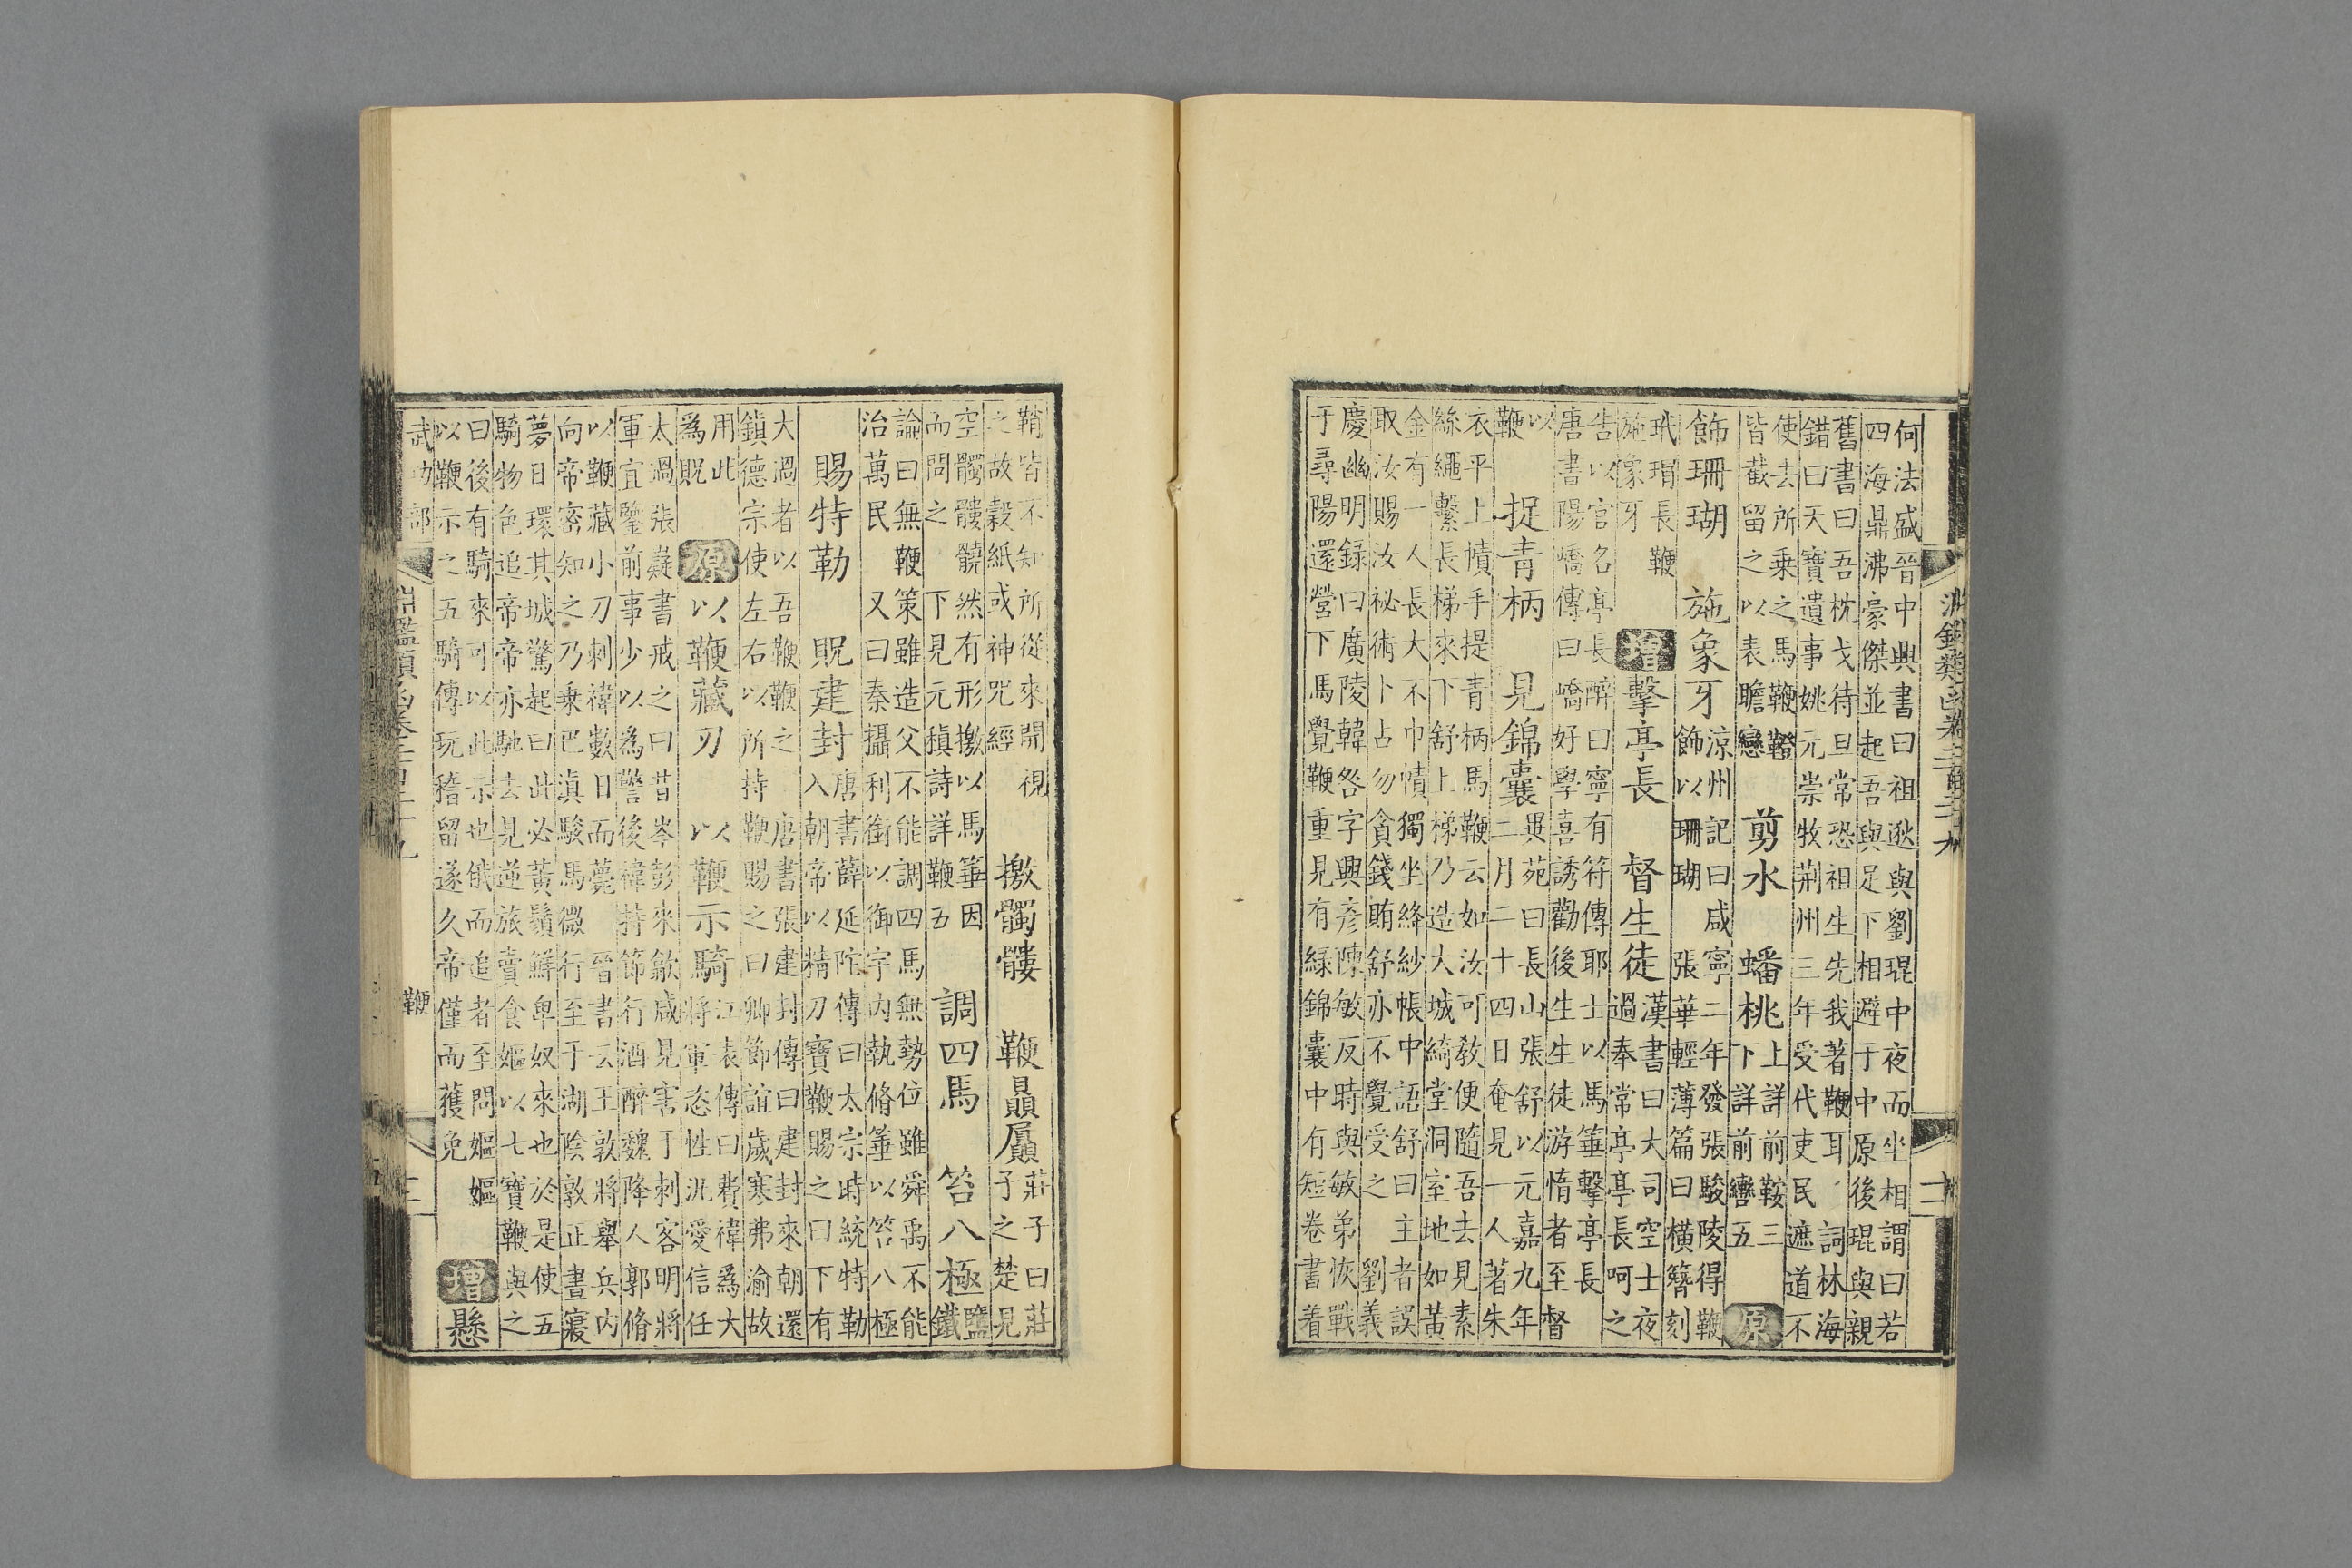 淵鑑類函卷二百二十九
二
何法盛晉中興書曰祖逖與劉琨中夜而坐相謂曰若
四海鼎沸豪傑並起吾與足下相避于中原後琨與親
舊書曰吾枕戈待旦常恐祖生先我著鞭耳 詞林海
錯曰天寶遺事姚元崇牧荊州三年受代吏民遮道不
使去所乗之馬鞭
皆截留之以表瞻戀
剪水 蟠桃
上詳前鞍三
下詳前轡五
原
飾珊瑚 施象牙
涼州記曰咸寧二年發張駿陵得鞭
飾以珊瑚 張華輕薄篇曰橫簪刻
玳瑁長鞭
施象牙
增擊亭長 督生徒
漢書曰大司空士夜
過奉常亭亭長呵之
告以官名亭長醉曰寧有符傳耶士以馬箠擊亭長
唐書陽嶠傳曰嶠好學喜誘勸後生生徒游惰者至督
以
鞭
捉青柄 見錦囊
異苑曰長山張舒以元嘉九年
二月二十四日奄見一人著朱
衣平上幘手提青柄馬鞭云如汝可敎便隨吾去見素
絲繩繫長梯來下舒上梯乃造大城綺堂洞室地如黃
金有一人長大不巾幘獨坐絳紗帳中語舒曰主者誤
取汝賜汝祕術卜占勿貪錢賄舒亦不覺受之 劉義
慶幽明録曰廣陵韓咎字興彦陳敏反時與敏弟恢戰
于尋陽還營下馬覺鞭重見有緑錦囊中有短卷書着
鞘皆不知所從來開視
之故穀紙或神咒經
撽髑髏 鞭贔屭
莊子曰莊
子之楚見
空髑髏髐然有形撽以馬箠因
而問之 下見元稹詩詳鞭五
調四馬 笞八極
鹽
鐵
論曰無鞭策雖造父不能調四馬無勢位雖舜禹不能
治萬民 又曰秦攝利銜以御宇内執脩箠以笞八極
賜特勒 貺建封
唐書薛延陀傳曰太宗時統特勒
入朝帝以精刀寶鞭賜之曰下有
大過者以吾鞭鞭之 唐書張建封傳曰建封來朝還
鎮德宗使左右以所持鞭賜之曰卿節誼歲寒弗渝故
用此
爲貺
原以鞭藏刃 以鞭示騎
江表傳曰費禕爲大
將軍恣性汎愛信任
太過張嶷書戒之曰昔岑彭來歙咸見害于刺客明將
軍宜鑒前事少以為警後禕持節行酒醉魏降人郭脩
以鞭藏小刀刺禕數日而薨 晉書云王敦將舉兵内
向帝宻知之乃乗巴滇駿馬微行至于湖陰敦正晝寢
夢日環其城驚起曰此必黃鬚鮮卑奴來也於是使五
騎物色追帝帝亦馳去見逆旅賣食嫗以七寶鞭與之
曰後有騎來可以此示也俄而追者至問嫗嫗
以鞭示之五騎傳玩稽留遂久帝僅而獲免
增懸
武功部
淵鑑類函卷二百二十九
鞭
三